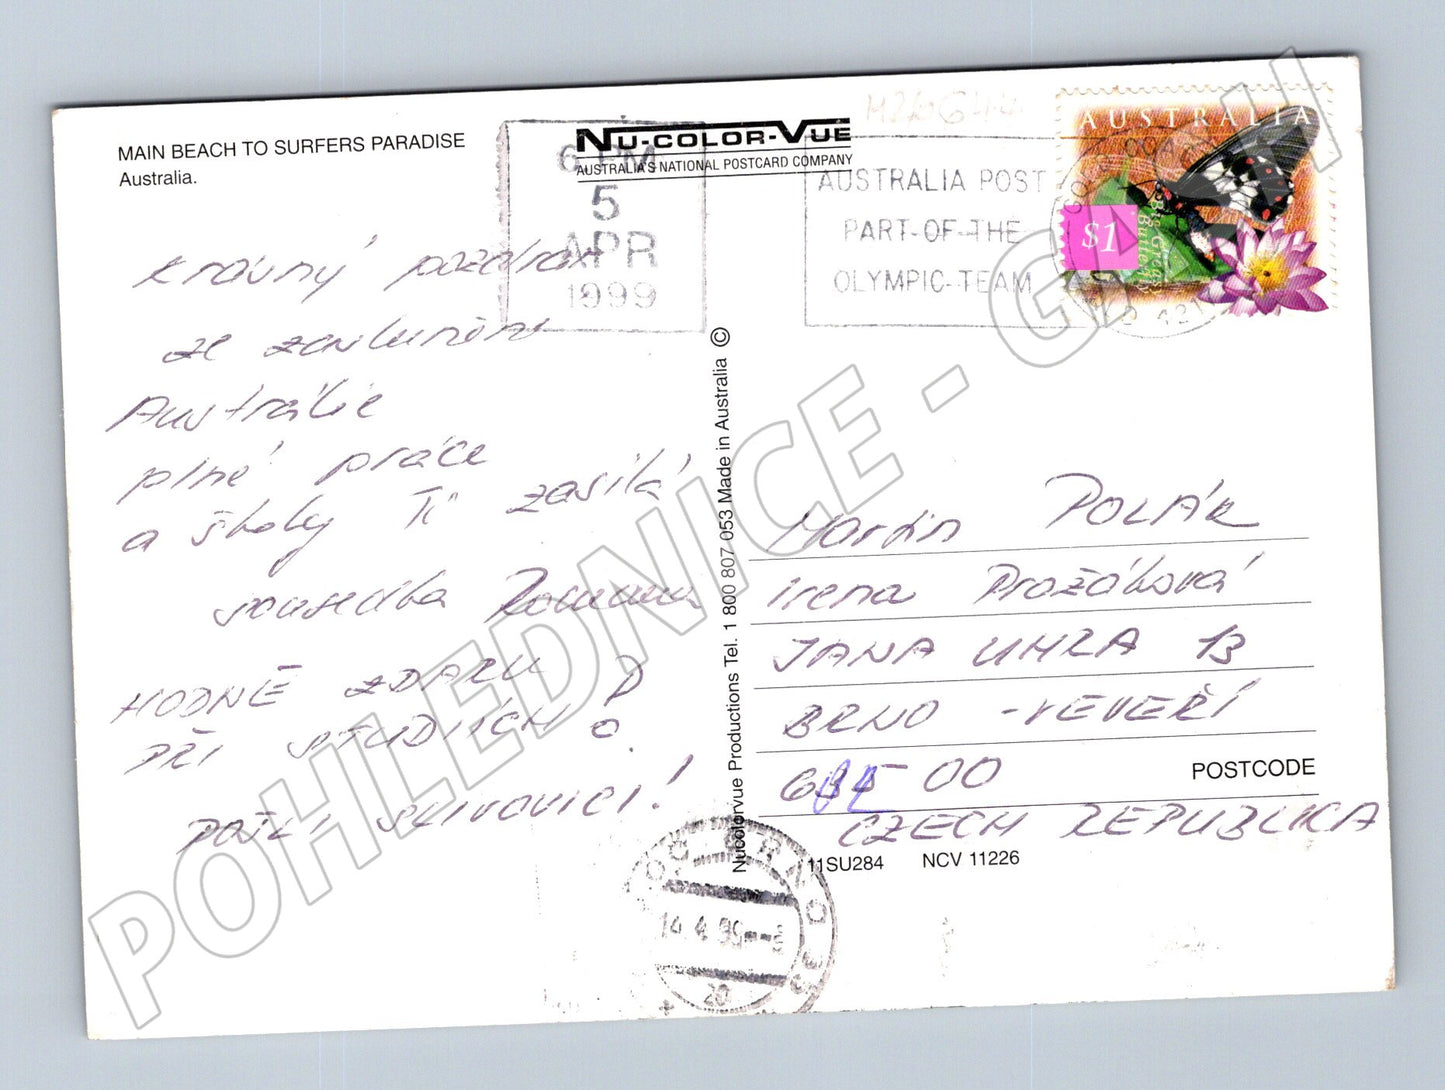 MAIN BEACH TO SURFERS PARADISE
Australia.
NU-COLOR-VUE
AUSTRALIA'S NATIONAL POSTCARD COMPANY
6 PM
5
APR
1999
AUSTRALIA POST
PART-OF-THE
OLYMPIC-TEAM
AUSTRALIA
$1
Big Greasy
Butterfly
Krásný pozdrav
ze zasluněné
Austrálie
plné práce
a školy Ti zasílá
sousedka Romana
HODNĚ ZDARU
PŘI STUDIICH
POŠLI SLIVOVICI!
Nucolorvue Productions Tel. 1 800 807 053 Made in Australia ©
Martin POLÁK
Irena Pražáková
JANA UHRA 13
BRNO - VEVEŘÍ
00
POSTCODE
CZECH REPUBLICA
11SU284 NCV 11226
BRNO
14.4.99
20
POHLEDNICE - GNOH